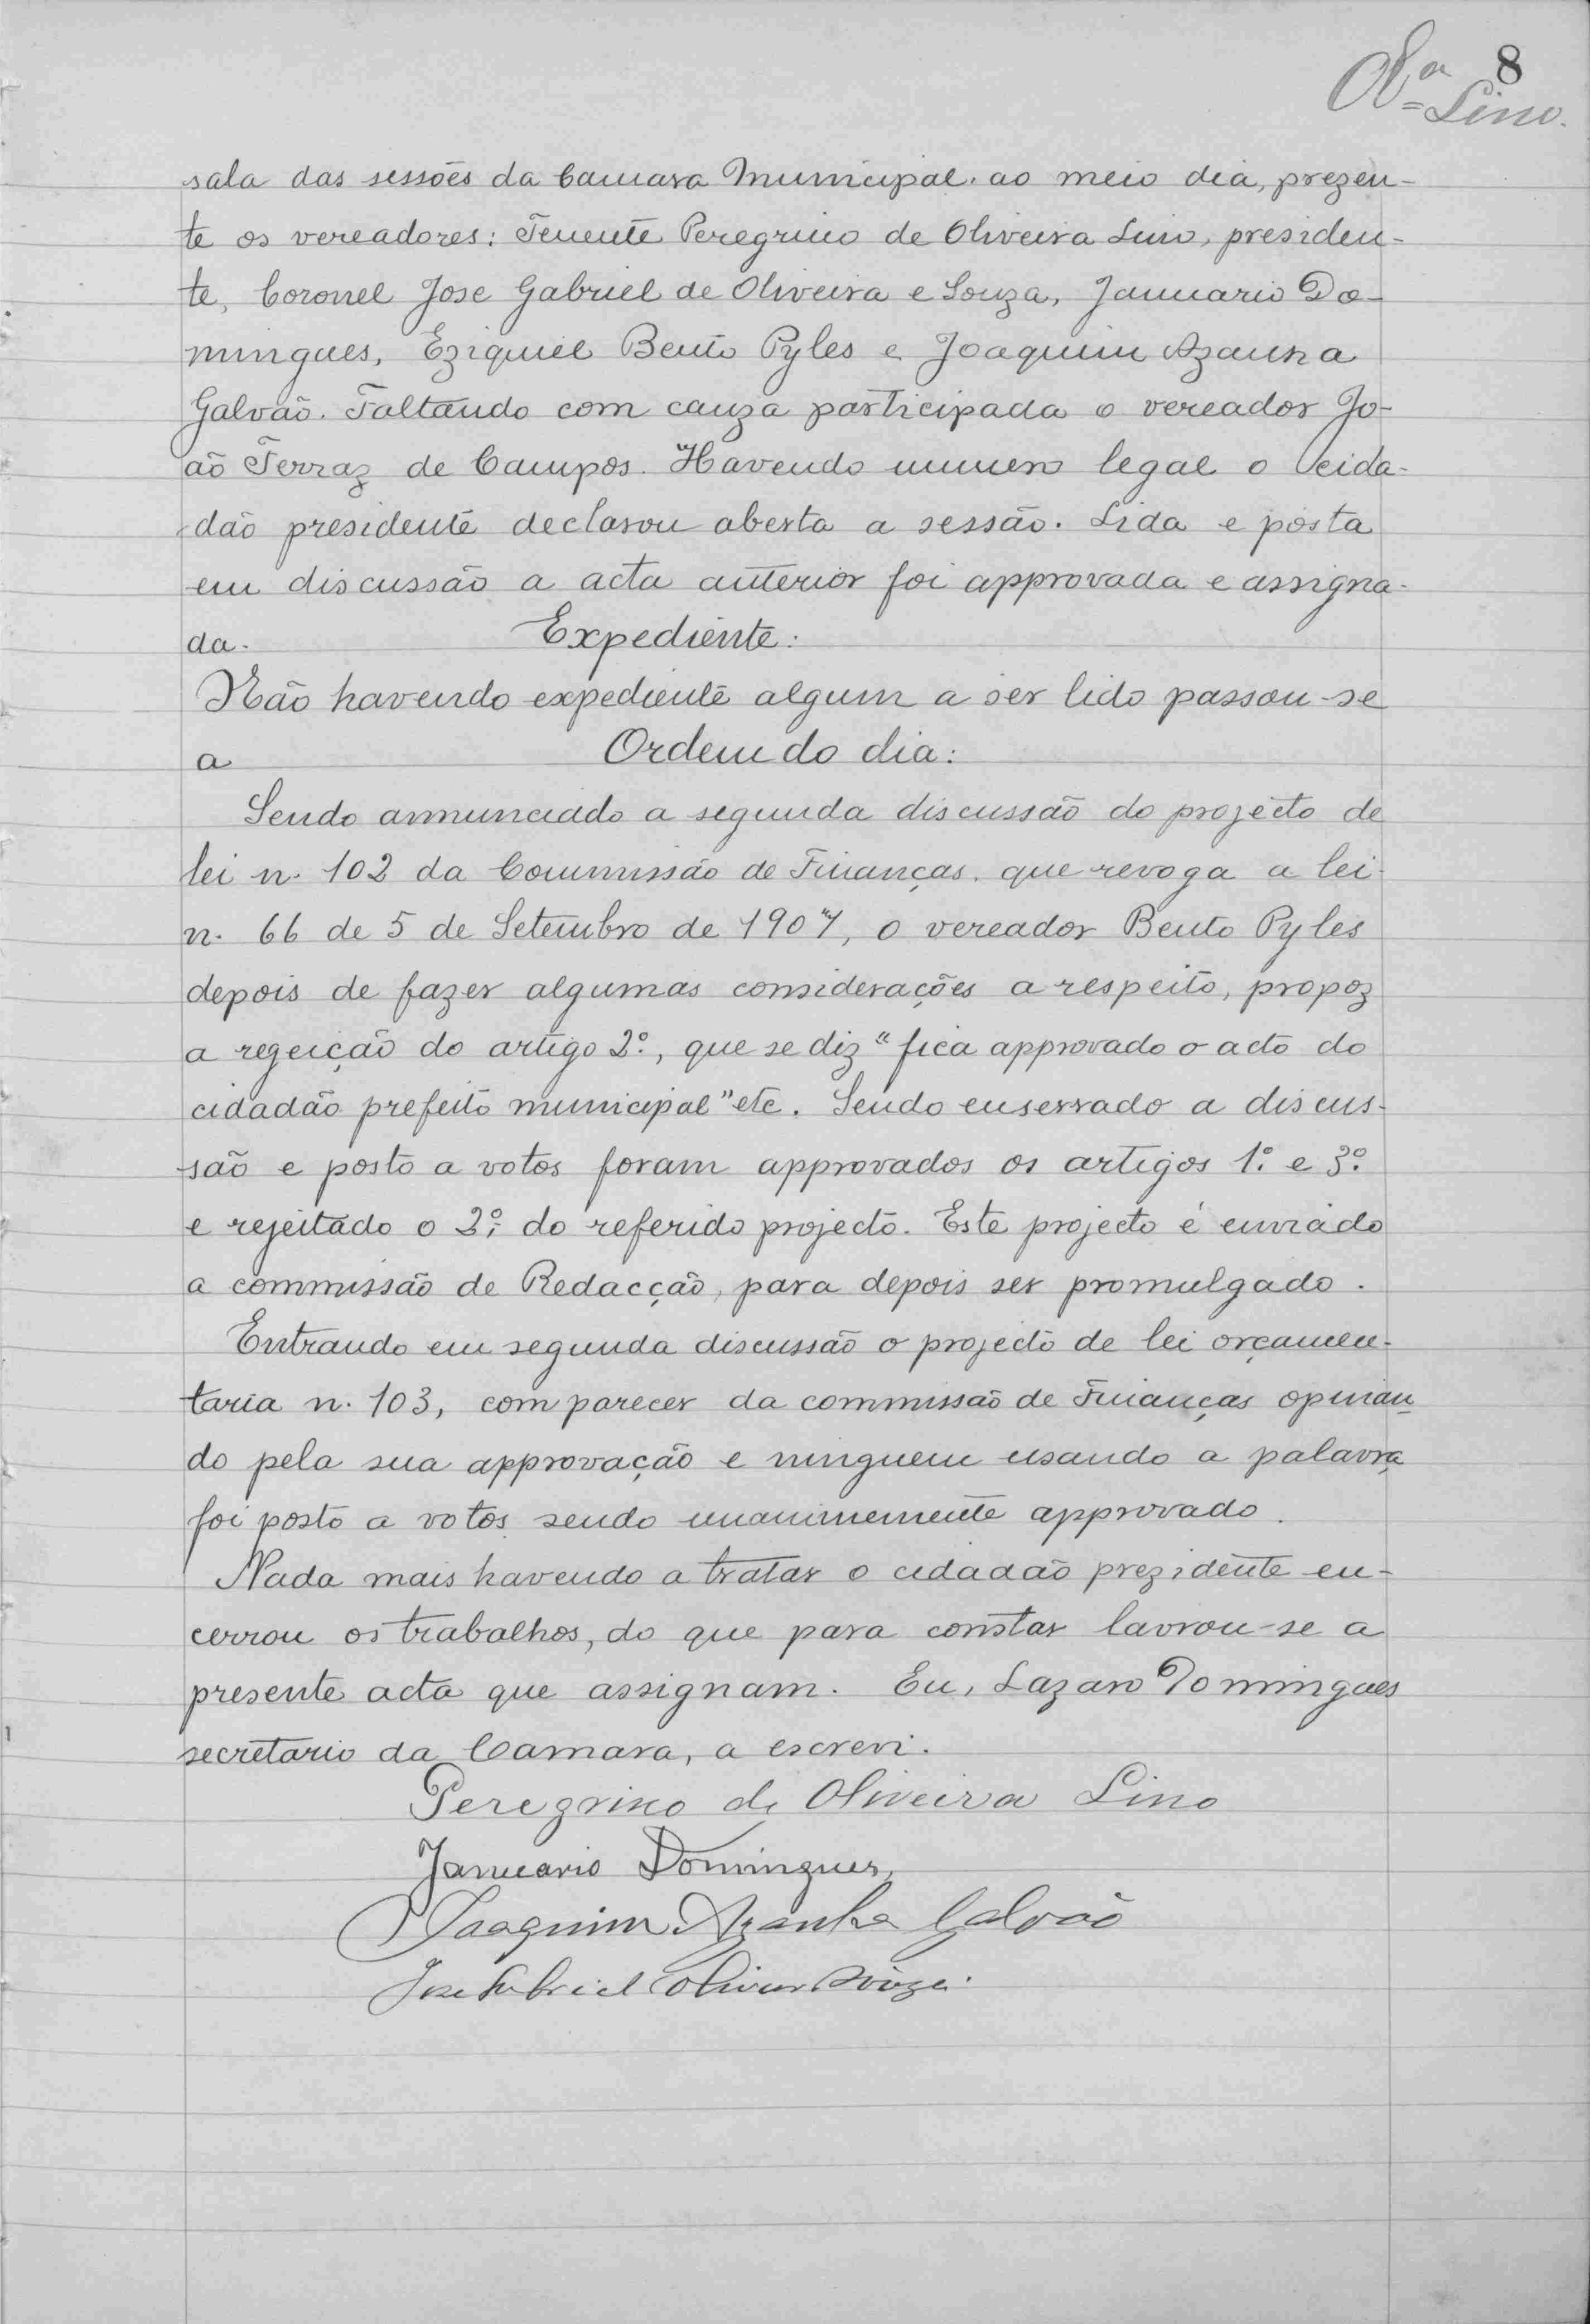 8
Olª Lino.
sala das sessões da Camara Municipal. ao meio dia, prezen-
te os vereadores: Tenente Peregrino de Oliveira Lino, presiden-
te, Coronel Jose Gabriel de Oliveira e Souza, Januario Do-
mingues, Eziquiel Bento Pyles e Joaquim Azanha
Galvaõ. Faltando com cauza participada o vereador Jo-
aõ Ferraz de Campos. Havendo numero legal o cida-
dão presidente declarou aberta a sessão. Lida e posta
em discussão a acta anterior foi approvada e assigna-
da. Expediente:
Não havendo expediente algum a ser lido passou-se
a Ordem do dia:
Sendo annunciado a segunda discussão do projecto de
lei n. 102 da Commissão de Finanças. que revoga a lei
n. 66 de 5 de Setembro de 1907, o vereador Bento Pyles
depois de fazer algumas considerações a respeito, propoz
a regeição do artigo 2º, que se diz "fica approvado o acto do
cidadão prefeito municipal" etc. Sendo enserrado a discus-
são e posto a votos foram approvados os artigos 1º e 3º
e rejeitado o 2º, do referido projecto. Este projecto é enviado
a commissão de Redacção, para depois ser promulgado.
Entrando em segunda discussão o projecto de lei orçamen-
taria n. 103, com parecer da commissão de Finanças opinan-
do pela sua approvação e ninguem usando a palavra
foi posto a votos sendo unanimemente approvado.
Nada mais havendo a tratar o cidadão prezidente en-
cerrou os trabalhos, do que para constar lavrou-se a
presente acta que assignam. Eu, Lazaro Domingues
secretario da Camara, a escrevi.
Peregrino de Oliveira Lino
Januario Domingues,
Joaquim Azanha Galvaõ
Jose Gabriel Oliveira Souza.